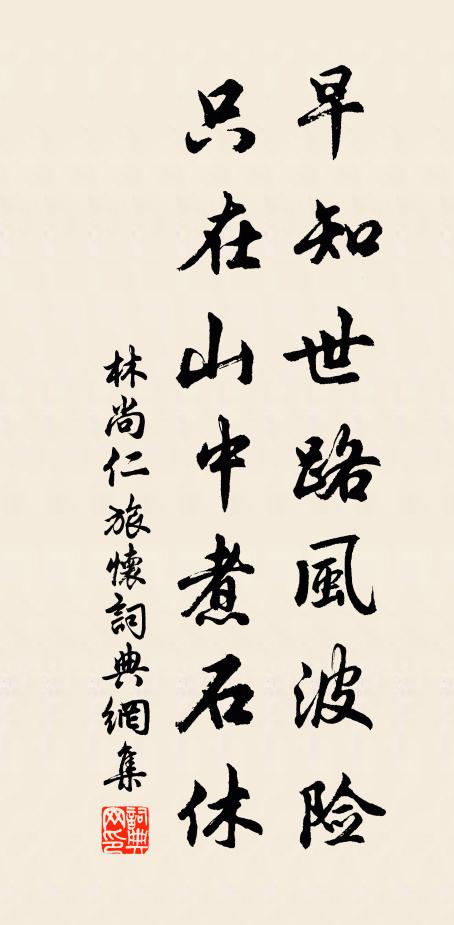 早知世路風波险
只在山中煮石休
林尚仁旅懷詞典網集
詞典網印